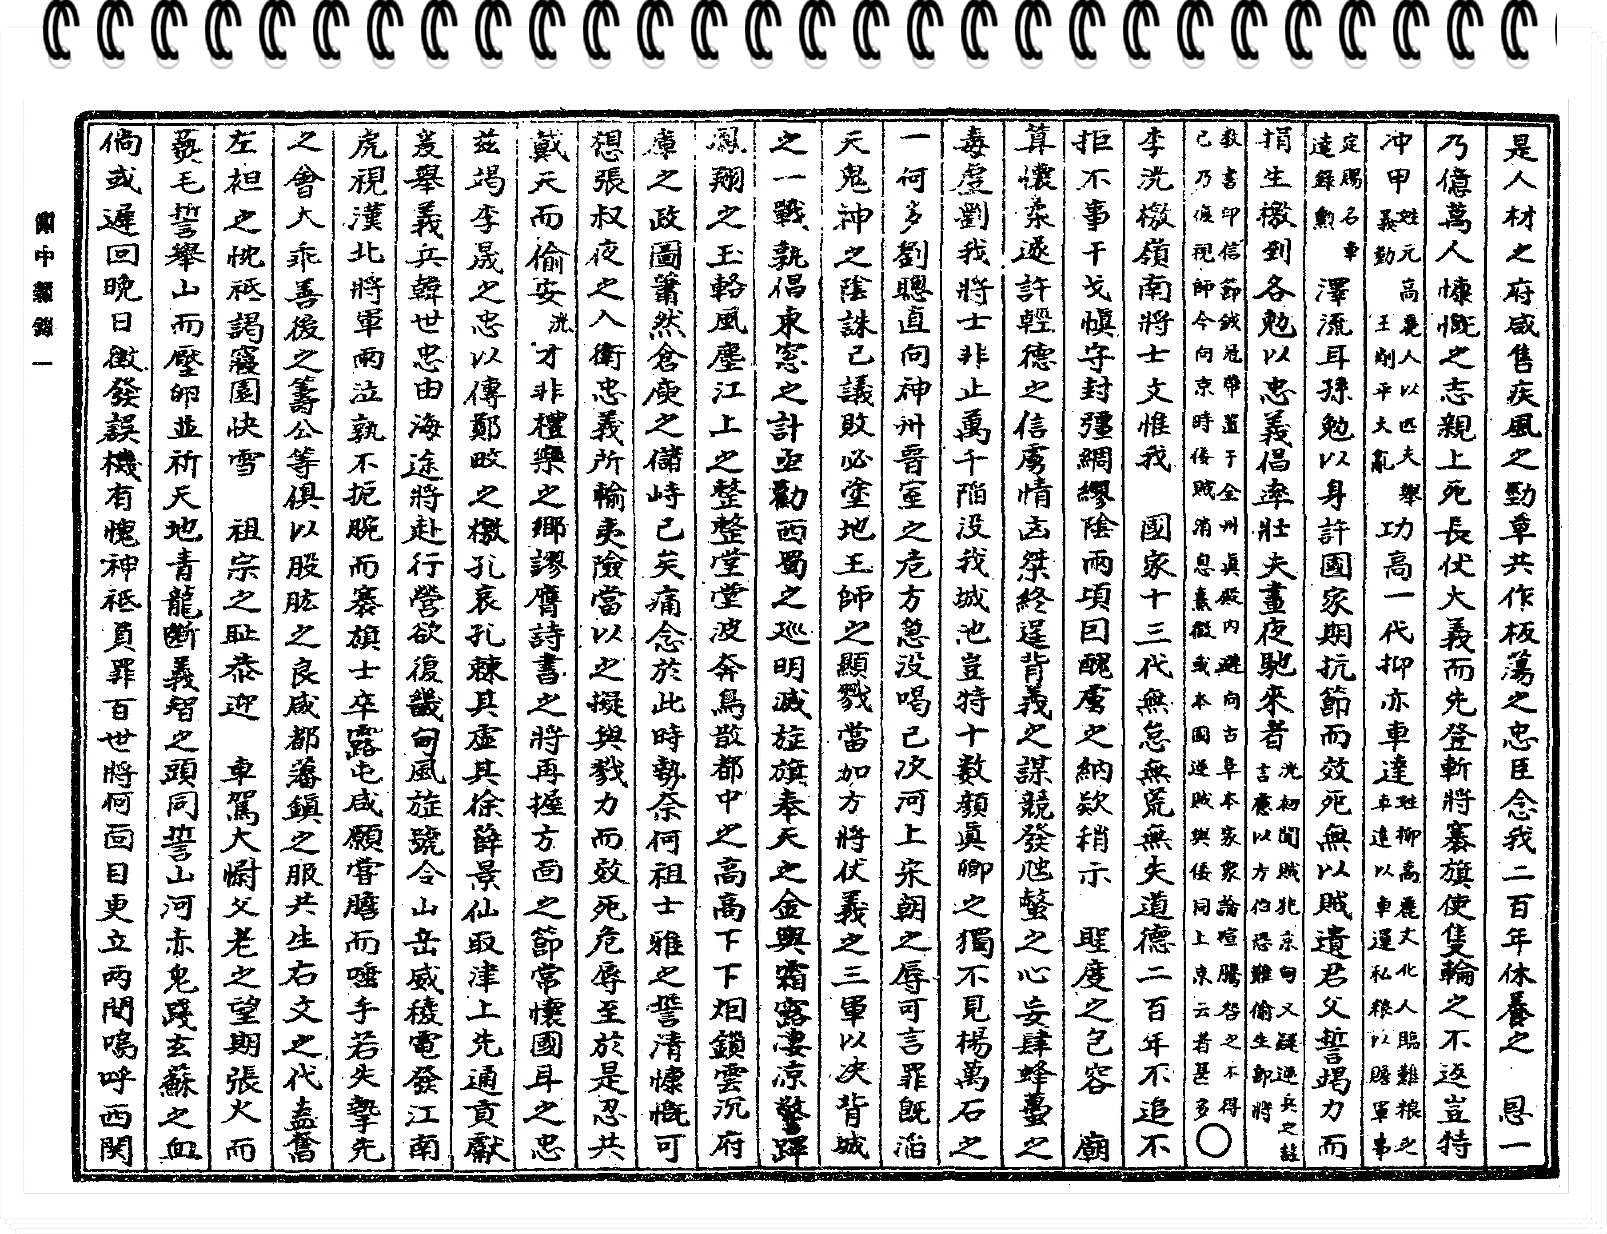 是人材之府咸售疾風之勁草共作板蕩之忠臣念我二百年休養之 恩一
乃億萬人慷慨之志親上死長伏大義而先登斬將搴旗使隻輪之不返豈特
冲甲姓元高麗人以匹夫擧義勤王削平大亂功高一代抑亦車達姓柳高麗文化人臨難粮乏車達以車運私粮以贍軍事
定賜名車達錄勳澤流耳孫勉以身許國家期抗節而效死無以賊遺君父誓竭力而
捐生檄到各勉以忠義倡率壯夫晝夜馳來者洸初聞賊犯京甸又疑逆兵之詿言應以方伯恐難偷生部將
教書印信節鉞冠帶置于全州眞殿內避向古阜本家衆論喧騰咎之不得已乃復視師今向京時倭賊消息藁徵或本國逆賊與倭同上京云者甚多○
李洸檄嶺南將士文惟我 國家十三代無怠無荒無失道德二百年不追不
拒不事干戈愼守封疆綢繆陰雨頃因醜虜之納欵稍示 聖度之包容 廟
算懷柔遂許輕德之信虜情凶桀終逞背義之謀競發虺螫之心妄肆蜂蠆之
毒虔劉我將士非止萬千陷没我城池豈特十數顏眞卿之獨不見楊萬石之
一何多劉聰直向神州晋室之危方急没喝已次河上宋朝之辱可言罪旣滔
天鬼神之陰誅已議敗必塗地王師之顯戮當加方將伏義之三軍以决背城
之一戰孰倡東窓之計亟勸西蜀之廵明滅旌旗奉天之金輿霜露凄凉警蹕
鳳翔之玉輅風塵江上之整整堂堂波奔鳥散都中之高高下下烟鎖雲沉府
庫之政圖簫然倉庾之儲峙已矣痛念於此時勢奈何祖士雅之誓清慷慨可
想張叔夜之入衛忠義所輸夷險當以之擬與戮力而效死危辱至於是忍共
戴天而偷安洸才非禮樂之鄕謬膺詩書之將再握方面之節常懷國耳之忠
玆竭李晟之忠以傳鄭畋之檄孔哀孔棘其虛其徐薛景仙取津上先通貢獻
爰擧義兵韓世忠由海途將赴行營欲復畿甸風旋號令山岳威稜電發江南
虎視漢北將軍雨泣孰不扼腕而搴旗士卒露屯咸願嘗膽而唾手若失摯先
之會大乖善後之籌公等俱以股肱之良咸都藩鎭之服共生右文之代盍奮
左袒之忱祗謁寢園快雪 祖宗之耻恭迎 車駕大慰父老之望期張火而
爇毛誓擧山而壓卵並祈天地青龍斷義智之頭同誓山河赤鬼踐玄蘇之血
倘或遲回晩日徵發誤機有愧神祗負罪百世將何面目更立两間嗚呼西関
亂中雜錄 一